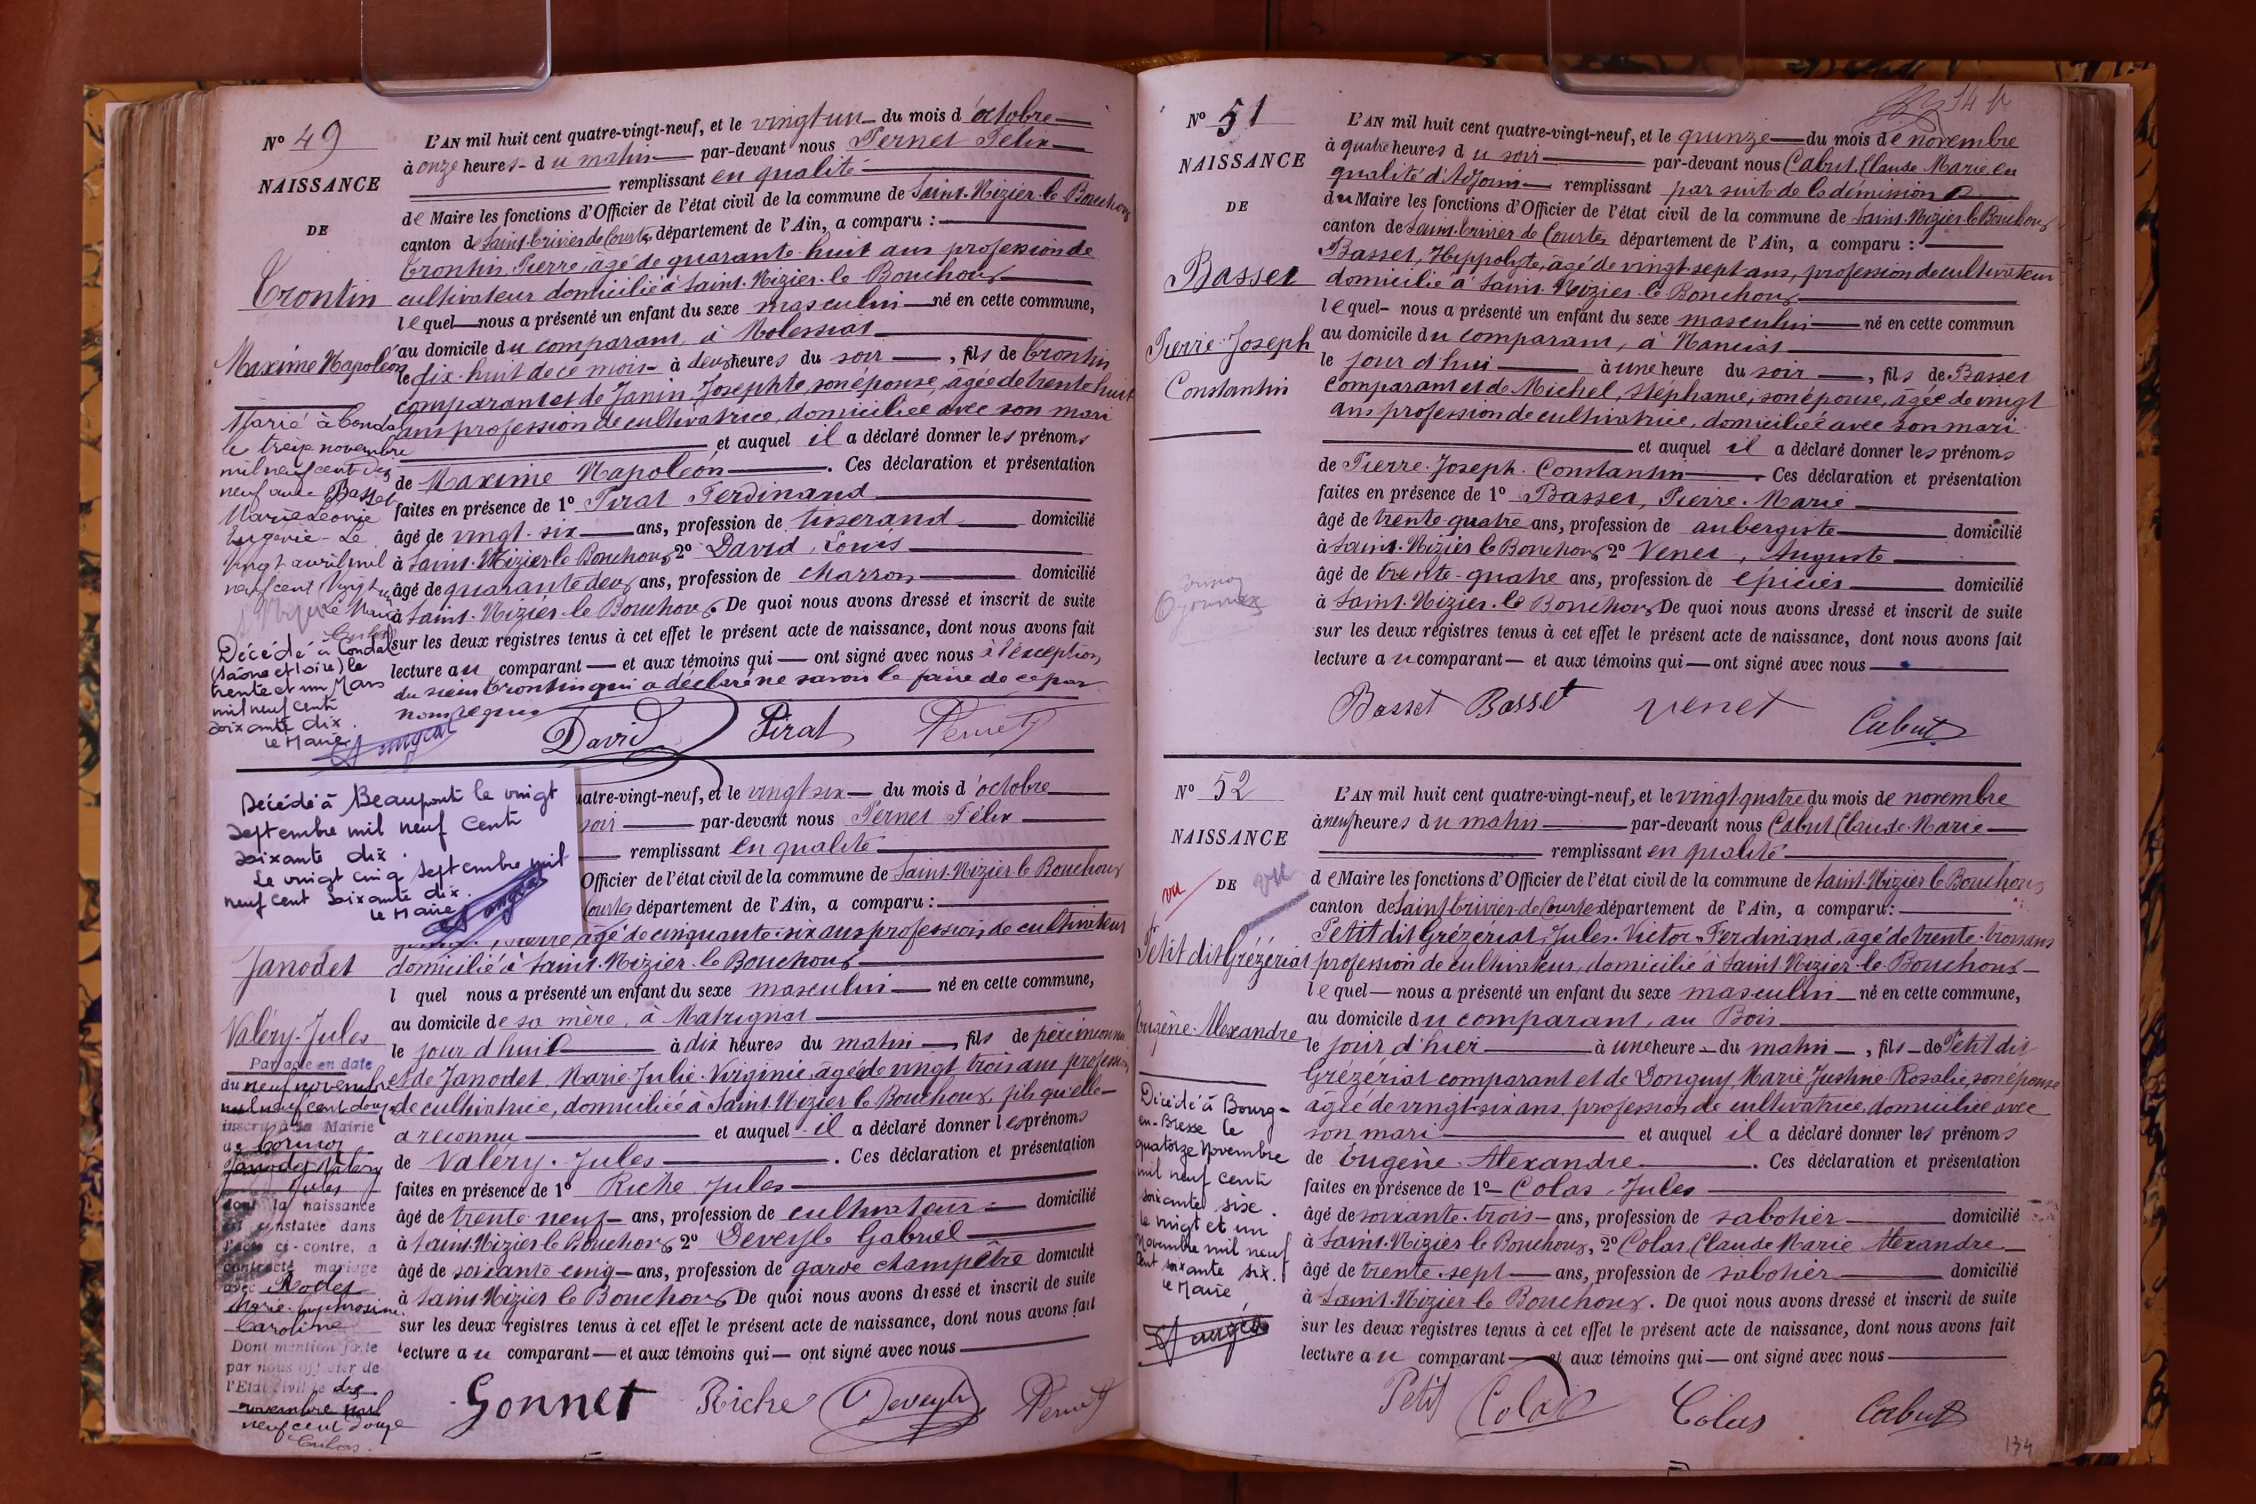 N° 49
NAISSANCE
DE
Trontin
Maxime Napoléon
Marié à Condal
le treize novembre
mil neuf cent dix
neuf avec Basset
Marie Léonie
Eugénie - Le
vingt avril mil
neuf cent vingt un
Le Maire
Décédé à Condal
(Saône et Loire) le
trente et un Mars
mil neuf cent
soixante dix.
Le Maire
L'AN mil huit cent quatre-vingt-neuf, et le vingt un du mois d'octobre
à onze heures du matin par-devant nous Pernet Félix
remplissant en qualité
de Maire les fonctions d'Officier de l'état civil de la commune de Saint-Nizier-le-Bouchoux
canton de Saint-Trivier-de-Courtes, département de l'Ain, a comparu :
Trontin Pierre, âgé de quarante-huit ans profession de
cultivateur domicilié à Saint-Nizier-le-Bouchoux
lequel nous a présenté un enfant du sexe masculin né en cette commune,
au domicile du comparant, à Molessiat
le dix-huit de ce mois à deux heures du soir, fils de Trontin
comparant et de Janin Josephte, son épouse, âgée de trente huit
ans profession de cultivatrice, domiciliée avec son mari
et auquel il a déclaré donner les prénoms
de Maxime Napoléon. Ces déclaration et présentation
faites en présence de 1° Pirat Ferdinand
âgé de vingt-six ans, profession de tisserand domicilié
à Saint-Nizier-le-Bouchoux 2° David, Louis
âgé de quarante deux ans, profession de charron domicilié
à Saint-Nizier-le-Bouchoux. De quoi nous avons dressé et inscrit de suite
sur les deux registres tenus à cet effet le présent acte de naissance, dont nous avons fait
lecture au comparant et aux témoins qui ont signé avec nous à l'exception
du sieur Trontin qui a déclaré ne savoir le faire de ce par
nous requis
David Pirat Pernet
Décédé à Beaupont le vingt
septembre mil neuf cent
soixante dix.
Le vingt cinq septembre mil
neuf cent soixante dix.
Le Maire
Janodet
Valéry-Jules
Par acte en date
du neuf novembre
mil neuf cent douze
inscrit à la Mairie
de Cormoz
Janodet Valéry
Jules
dont la naissance
est constatée dans
l'acte ci-contre, a
contracté mariage
avec Rodet
Marie-Euphrosine
Caroline
Dont mention faite
par nous officier de
l'Etat civil le dix
novembre mil
neuf cent douze
quatre-vingt-neuf, et le vingt six du mois d'octobre
soir par-devant nous Pernet Félix
remplissant en qualité
Officier de l'état civil de la commune de Saint-Nizier le Bouchoux
Courtes département de l'Ain, a comparu :
Pierre âgé de cinquante-six ans profession de cultivateur
domicilié à Saint-Nizier-le-Bouchoux
l quel nous a présenté un enfant du sexe masculin né en cette commune,
au domicile de sa mère, à Matrignat
le jour d'huit à dix heures du matin, fils de père inconnu
et de Janodet, Marie Julie Virginie âgée de vingt trois ans profession
de cultivatrice, domiciliée à Saint-Nizier le Bouchoux, fils qu'elle
a reconnu et auquel il a déclaré donner les prénoms
de Valéry-Jules. Ces déclaration et présentation
faites en présence de 1° Riche Jules
âgé de trente neuf ans, profession de cultivateur domicilié
à Saint-Nizier le Bouchoux 2° Deveyle Gabriel
âgé de soixante cinq ans, profession de garde champêtre domicilié
à Saint Nizier le Bouchoux. De quoi nous avons dressé et inscrit de suite
sur les deux registres tenus à cet effet le présent acte de naissance, dont nous avons fait
lecture au comparant et aux témoins qui ont signé avec nous
Gonnet Riche Deveyle Pernet
N° 51
NAISSANCE
DE
Basset
Pierre-Joseph
Constantin
L'AN mil huit cent quatre-vingt-neuf, et le quinze du mois de novembre
à quatre heures du soir par-devant nous Cabut, Claude Marie en
qualité d'Adjoint remplissant par suite de la démission
du Maire les fonctions d'Officier de l'état civil de la commune de Saint-Nizier-le-Bouchoux
canton de Saint-Trivier de Courtes département de l'Ain, a comparu :
Basset, Hippolyte, âgé de vingt-sept ans, profession de cultivateur
domicilié à Saint-Nizier-le-Bouchoux
lequel nous a présenté un enfant du sexe masculin né en cette commun
au domicile du comparant, à Nanciat
le jour d'hui à une heure du soir, fils de Basset
comparant et de Michel, Stéphanie, son épouse, âgée de vingt
ans profession de cultivatrice, domiciliée avec son mari
et auquel il a déclaré donner les prénoms
de Pierre-Joseph-Constantin. Ces déclaration et présentation
faites en présence de 1° Basset, Pierre-Marie
âgé de trente-quatre ans, profession de aubergiste domicilié
à Saint-Nizier le Bouchoux 2° Venet, Auguste
âgé de trente-quatre ans, profession de épicier domicilié
à Saint-Nizier-le Bouchoux. De quoi nous avons dressé et inscrit de suite
sur les deux registres tenus à cet effet le présent acte de naissance, dont nous avons fait
lecture au comparant et aux témoins qui ont signé avec nous
Basset Basset Venet Cabut
N° 52
NAISSANCE
vu DE vu
Petit dit Grézériat
Eugène-Alexandre
Décédé à Bourg-
en-Bresse le
quatorze Novembre
mil neuf cent
soixante six.
Le vingt et un
Novembre mil neuf
cent soixante six.
Le Maire
L'AN mil huit cent quatre-vingt-neuf, et le vingt quatre du mois de novembre
à neuf heures du matin par-devant nous Cabut Claude-Marie
remplissant en qualité
de Maire les fonctions d'Officier de l'état civil de la commune de Saint-Nizier le Bouchoux
canton de Saint-Trivier-de-Courtes département de l'Ain, a comparu :
Petit dit Grézériat, Jules-Victor-Ferdinand, âgé de trente-trois ans
profession de cultivateur, domicilié à Saint-Nizier-le-Bouchoux
lequel nous a présenté un enfant du sexe masculin né en cette commune,
au domicile du comparant, au Bois
le jour d'hier à une heure du matin, fils de Petit dit
Grézériat comparant et de Donguy, Marie Justine Rosalie, son épouse
âgée de vingt-six ans profession de cultivatrice, domiciliée avec
son mari et auquel il a déclaré donner les prénoms
de Eugène-Alexandre. Ces déclaration et présentation
faites en présence de 1° Colas, Jules
âgé de soixante-trois ans, profession de sabotier domicilié
à Saint-Nizier le Bouchoux, 2° Colas Claude Marie Alexandre
âgé de trente-sept ans, profession de sabotier domicilié
à Saint-Nizier le Bouchoux. De quoi nous avons dressé et inscrit de suite
sur les deux registres tenus à cet effet le présent acte de naissance, dont nous avons fait
lecture au comparant et aux témoins qui ont signé avec nous
Petit Colas Colas Cabut
134